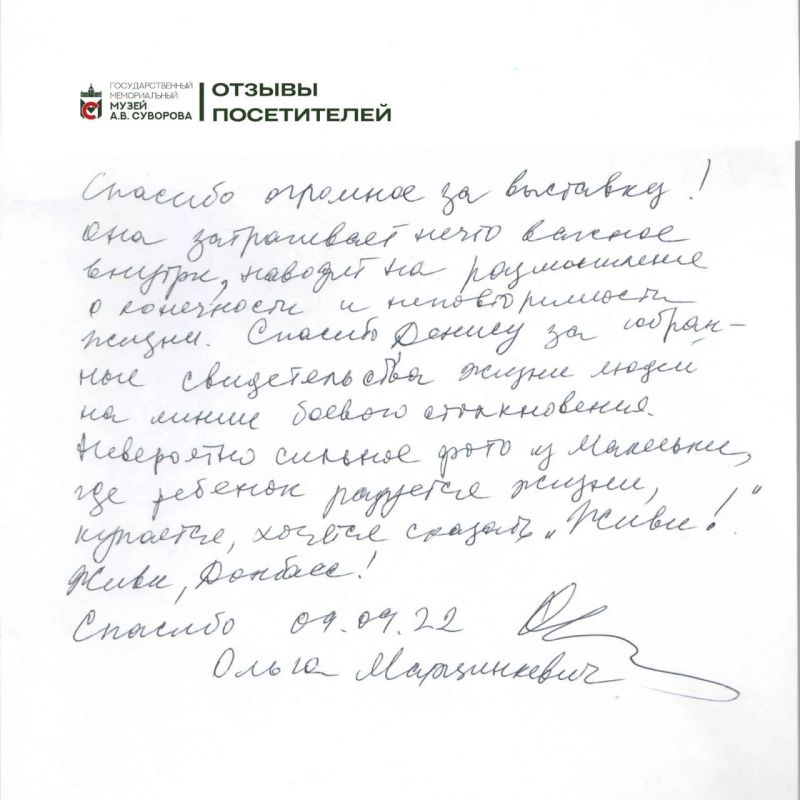 ГОСУДАРСТВЕННЫЙ
МЕМОРИАЛЬНЫЙ
МУЗЕЙ
А.В. СУВОРОВА
ОТЗЫВЫ
ПОСЕТИТЕЛЕЙ
Спасибо огромное за выставку!
Она затрагивает нечто важное
внутри, наводит на размышление
о конечности и неповторимости
жизни. Спасибо Денису за собран-
ные свидетельства жизни людей
на линии боевого столкновения.
Невероятно сильное фото из
где ребенок радуется жизни,
купается, хочется сказать „Живи!"
Живи, Донбасс!
Спасибо 09.09.22
Ольга Марцинкевич